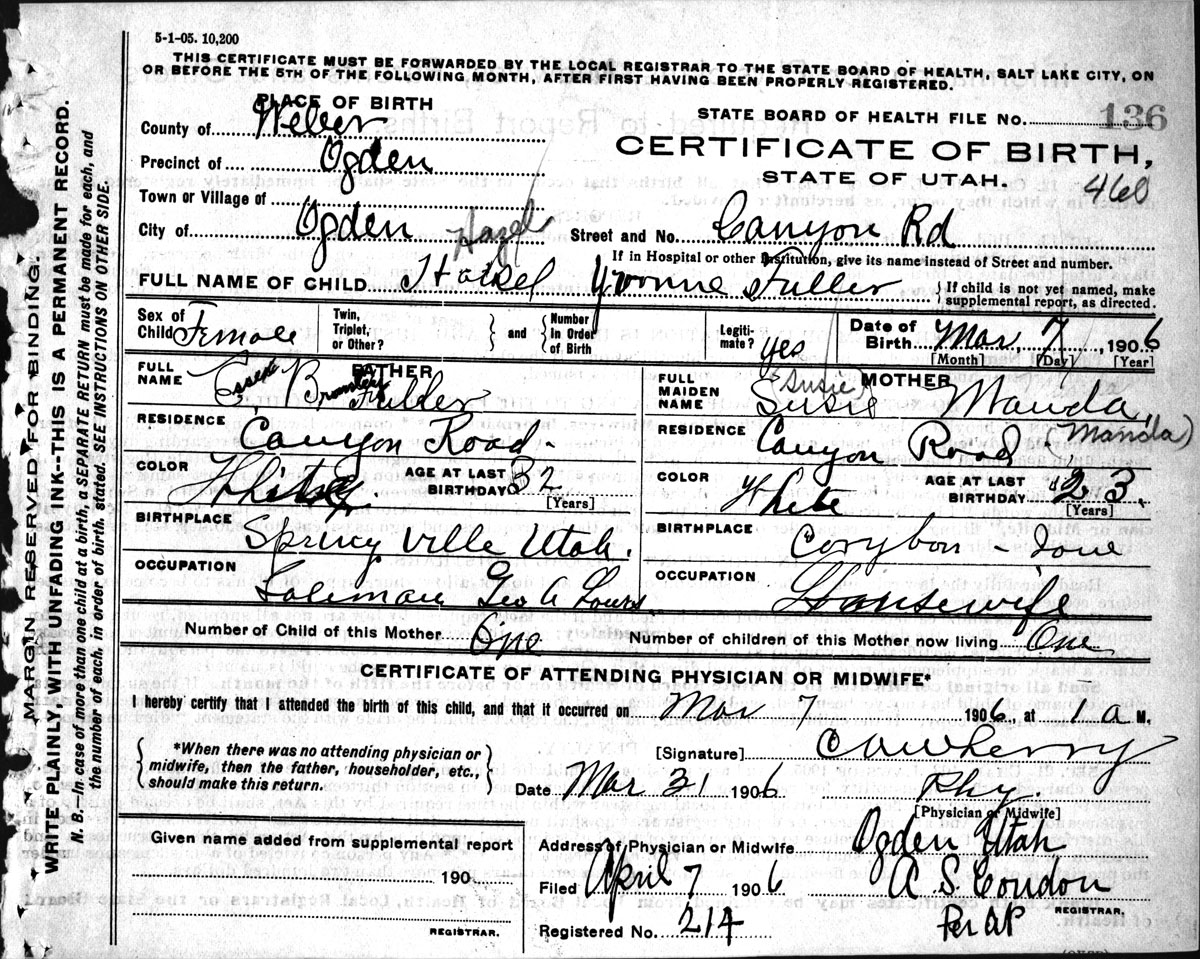 5-1-05. 10,200
THIS CERTIFICATE MUST BE FORWARDED BY THE LOCAL REGISTRAR TO THE STATE BOARD OF HEALTH, SALT LAKE CITY, ON
OR BEFORE THE 5TH OF THE FOLLOWING MONTH, AFTER FIRST HAVING BEEN PROPERLY REGISTERED.
MARGIN RESERVED FOR BINDING.
WRITE PLAINLY WITH UNFADING INK--THIS IS A PERMANENT RECORD.
N. B.--In case of more than one child at a birth, a SEPARATE RETURN must be made for each, and
the number of each, in order of birth, stated. SEE INSTRUCTIONS ON OTHER SIDE.
PLACE OF BIRTH
County of Weber
Precinct of Ogden
Town or Village of
City of Ogden
STATE BOARD OF HEALTH FILE NO. 136
CERTIFICATE OF BIRTH,
STATE OF UTAH.
460
Street and No. Canyon Rd
If in Hospital or other Institution, give its name instead of Street and number.
Hazel
FULL NAME OF CHILD Yvonne Fuller
If child is not yet named, make
supplemental report, as directed.
Sex of Child Female
Twin, Triplet, or Other?
and
Number in Order of Birth
Legitimate? yes
Date of Birth Mar. 7, 1906
[Month] [Day] [Year]
FATHER
FULL NAME Fuller
RESIDENCE Canyon Road
COLOR White
AGE AT LAST BIRTHDAY 32
[Years]
BIRTHPLACE Springville Utah.
OCCUPATION Geo A
MOTHER
(Susie)
FULL MAIDEN NAME Susie Manda
(Manda)
RESIDENCE Canyon Road
COLOR White
AGE AT LAST BIRTHDAY 23.
[Years]
BIRTHPLACE
OCCUPATION Housewife
Number of Child of this Mother One
Number of children of this Mother now living One
CERTIFICATE OF ATTENDING PHYSICIAN OR MIDWIFE*
I hereby certify that I attended the birth of this child, and that it occured on Mar 7 1906, at 1 a M.
*When there was no attending physician or
midwife, then the father, householder, etc.,
should make this return.
[Signature]
Date Mar 31 1906
Phy
[Physician or Midwife]
Address of Physician or Midwife Ogden Utah
Given name added from supplemental report
190
REGISTRAR.
Filed April 7 1906
A. S. Condon
REGISTRAR.
Registered No. 214
Per AP